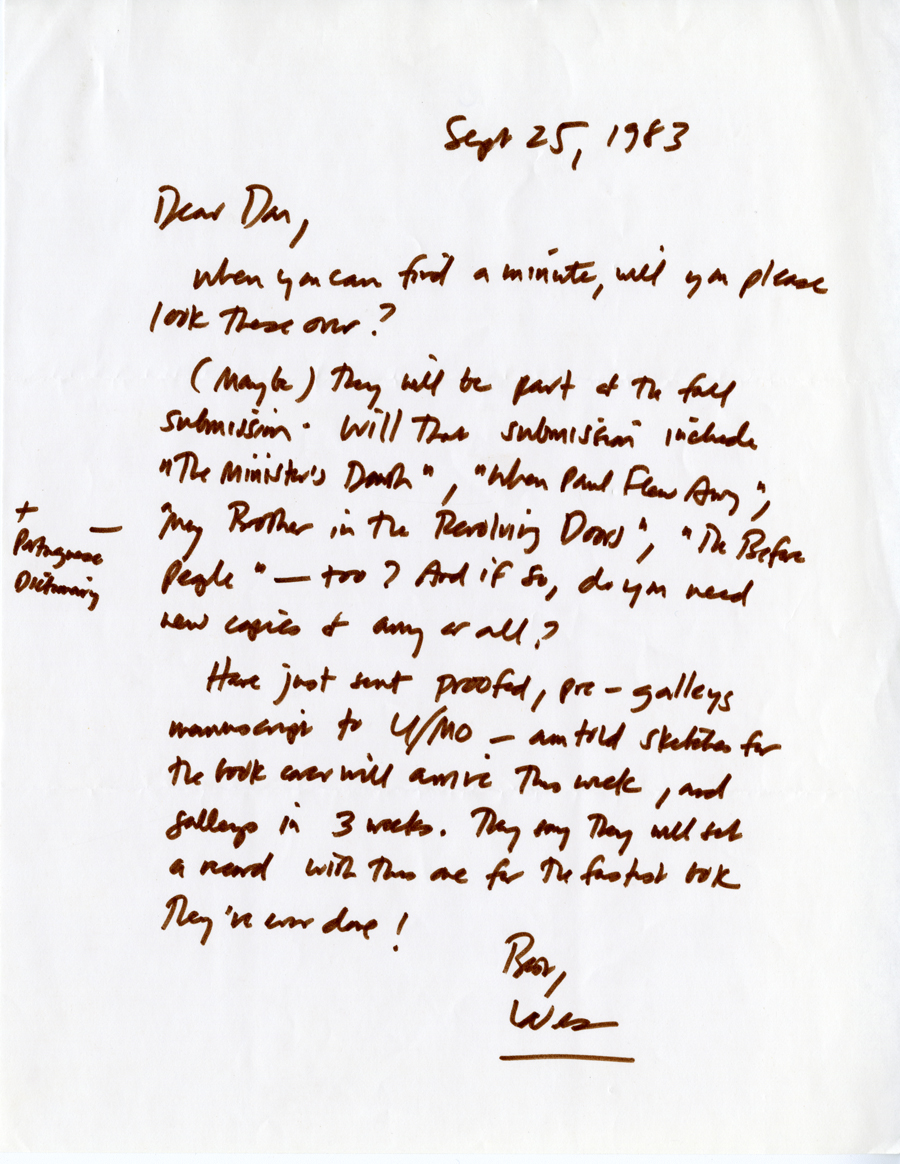 Sept 25, 1983
Dear Dan,
When you can find a minute, will you please
look these over?
(Maybe) they will be part of the fall
submission. Will that submission include
"The Minister's Death", "When Paul Flew Away",
"My Brother in the Revolving Doors", "The Before
+
Portuguese
Dictionary
People" — too? And if so, do you need
new copies of any or all?
Have just sent proofed, pre-galleys
manuscript to U/MO — am told sketches for
the book cover will arrive this week, and
galleys in 3 weeks. They say they will set
a record with this one for the fastest book
They've ever done!
Best,
Wes